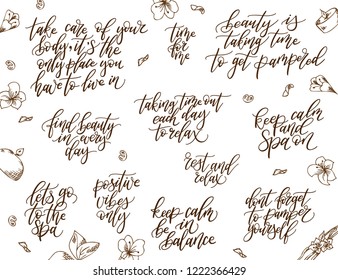 take care of your
body it is the
only place you
have to live in
time
for
me
beauty is
taking time
to get pampered
find beauty
in every
day
taking time out
each day
to relax
keep calm
and
spa on
rest and
relax
lets go
to the
spa
positive
vibes
only
keep calm
be in
balance
dont forget
to pamper
yourself
shutterstock.com · 1222366429